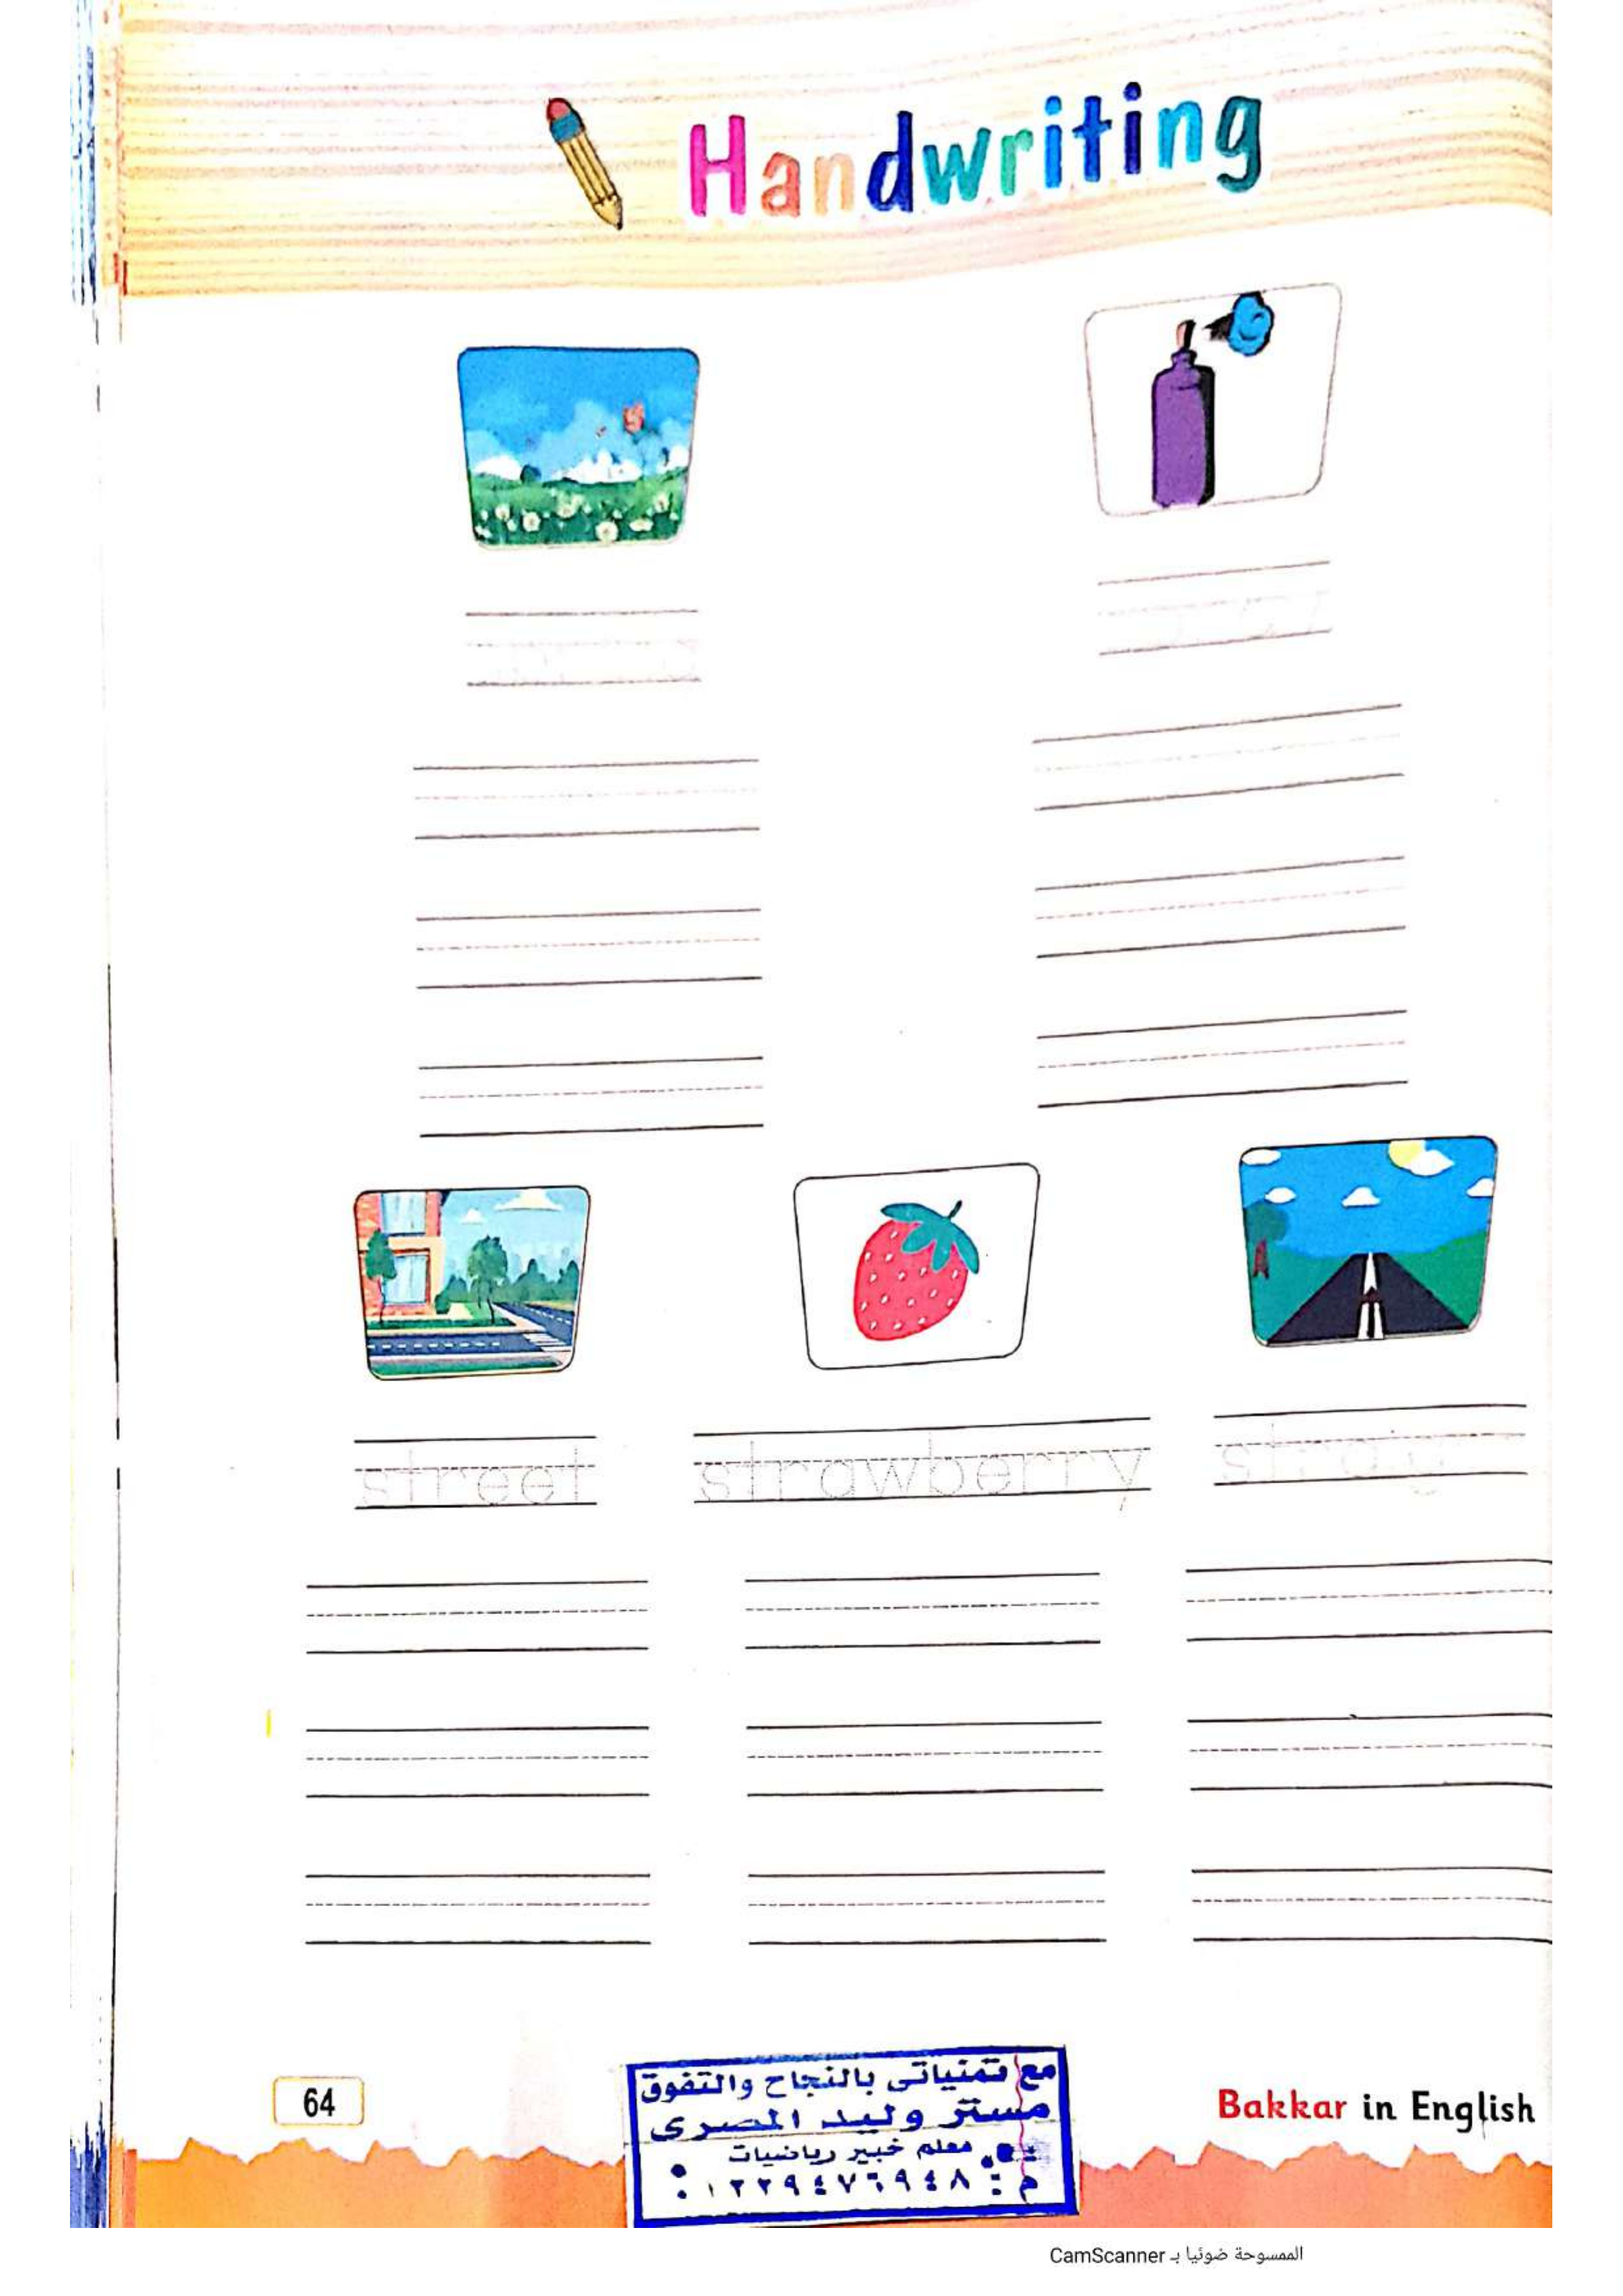 Handwriting
street strawberry
64
مع تمنياتى بالنجاح والتفوق
مستر وليد المصرى
معلم خبير رياضيات
م : ٠١٢٢٩٤٧٦٩٤٨
Bakkar in English
الممسوحة ضوئيا بـ CamScanner